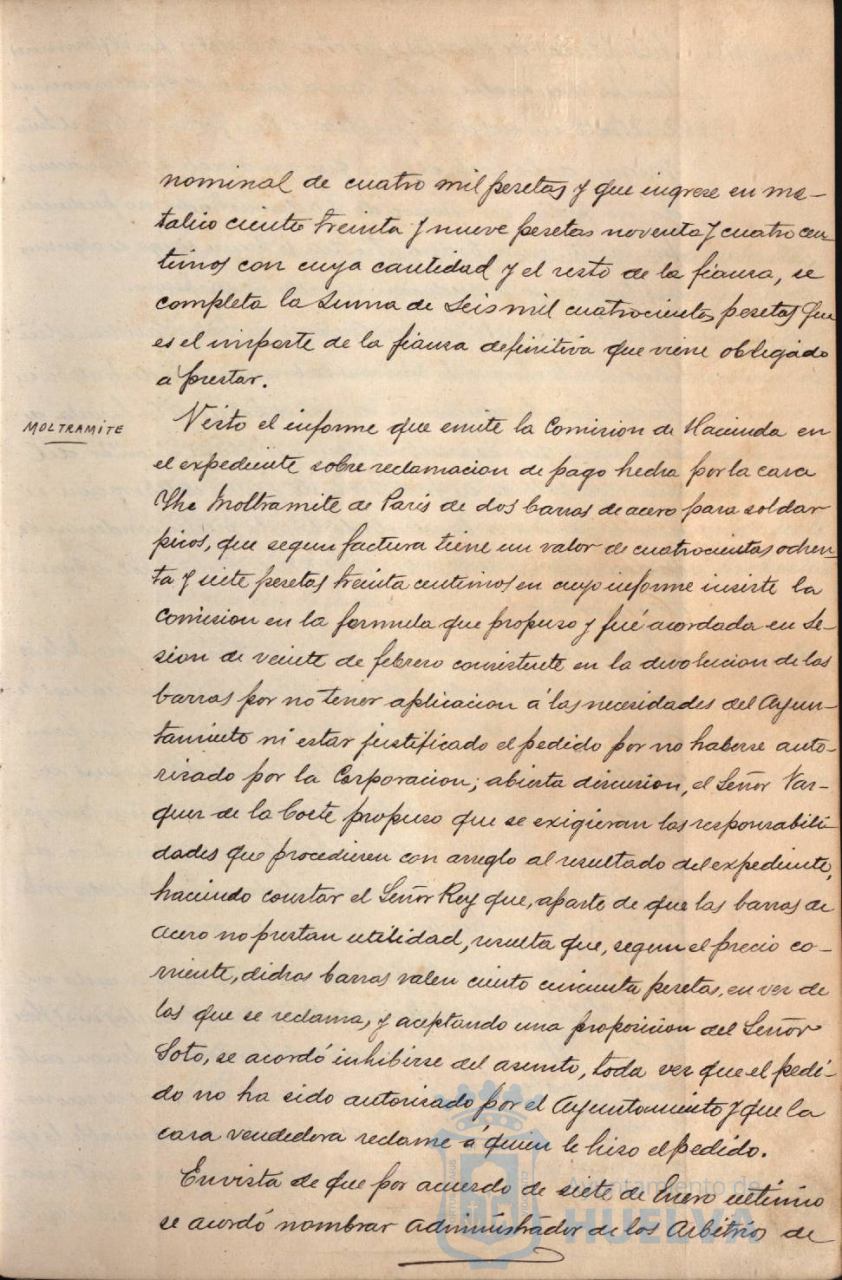 nominal de cuatro mil pesetas y que ingrese en me-
talico ciento treinta y nueve pesetas noventa y cuatro cen-
timos con cuya cantidad y el resto de la fianza, se
completa la suma de seis mil cuatrocientas pesetas que
es el importe de la fianza definitiva que viene obligado
á prestar.
MOLTRAMITE
Visto el informe que emite la Comision de Hacienda en
el expediente sobre reclamacion de pago hecha por la casa
The Moltramite de Paris de dos barras de acero para soldar
picos, que segun factura tiene un valor de cuatrocientas ochen-
ta y siete pesetas treinta centimos en cuyo informe insiste la
Comision en la formula que propuso y fué acordada en se-
sion de veinte de febrero consistente en la devolucion de las
barras por no tener aplicacion á las necesidades del Ayun-
tamiento ni estar justificado el pedido por no haberse auto-
rizado por la Corporacion; abierta discusion, el Señor Vaz-
quez de la Corte propuso que se exigieran las responsabili-
dades que procedieren con arreglo al resultado del expediente,
haciendo constar el Señor Rey que, aparte de que las barras de
acero no prestan utilidad, resulta que, segun el precio co-
rriente, dichas barras valen ciento cincuenta pesetas, en vez de
las que se reclama, y aceptando una proposicion del Señor
Soto, se acordó inhibirse del asunto, toda vez que el pedi-
do no ha sido autorizado por el Ayuntamiento y que la
casa vendedora reclame á quien le hizo el pedido.
En vista de que por acuerdo de siete de Enero ultimo
se acordó nombrar Administrador de los Arbitrios de
Ayuntamiento de
HUELVA